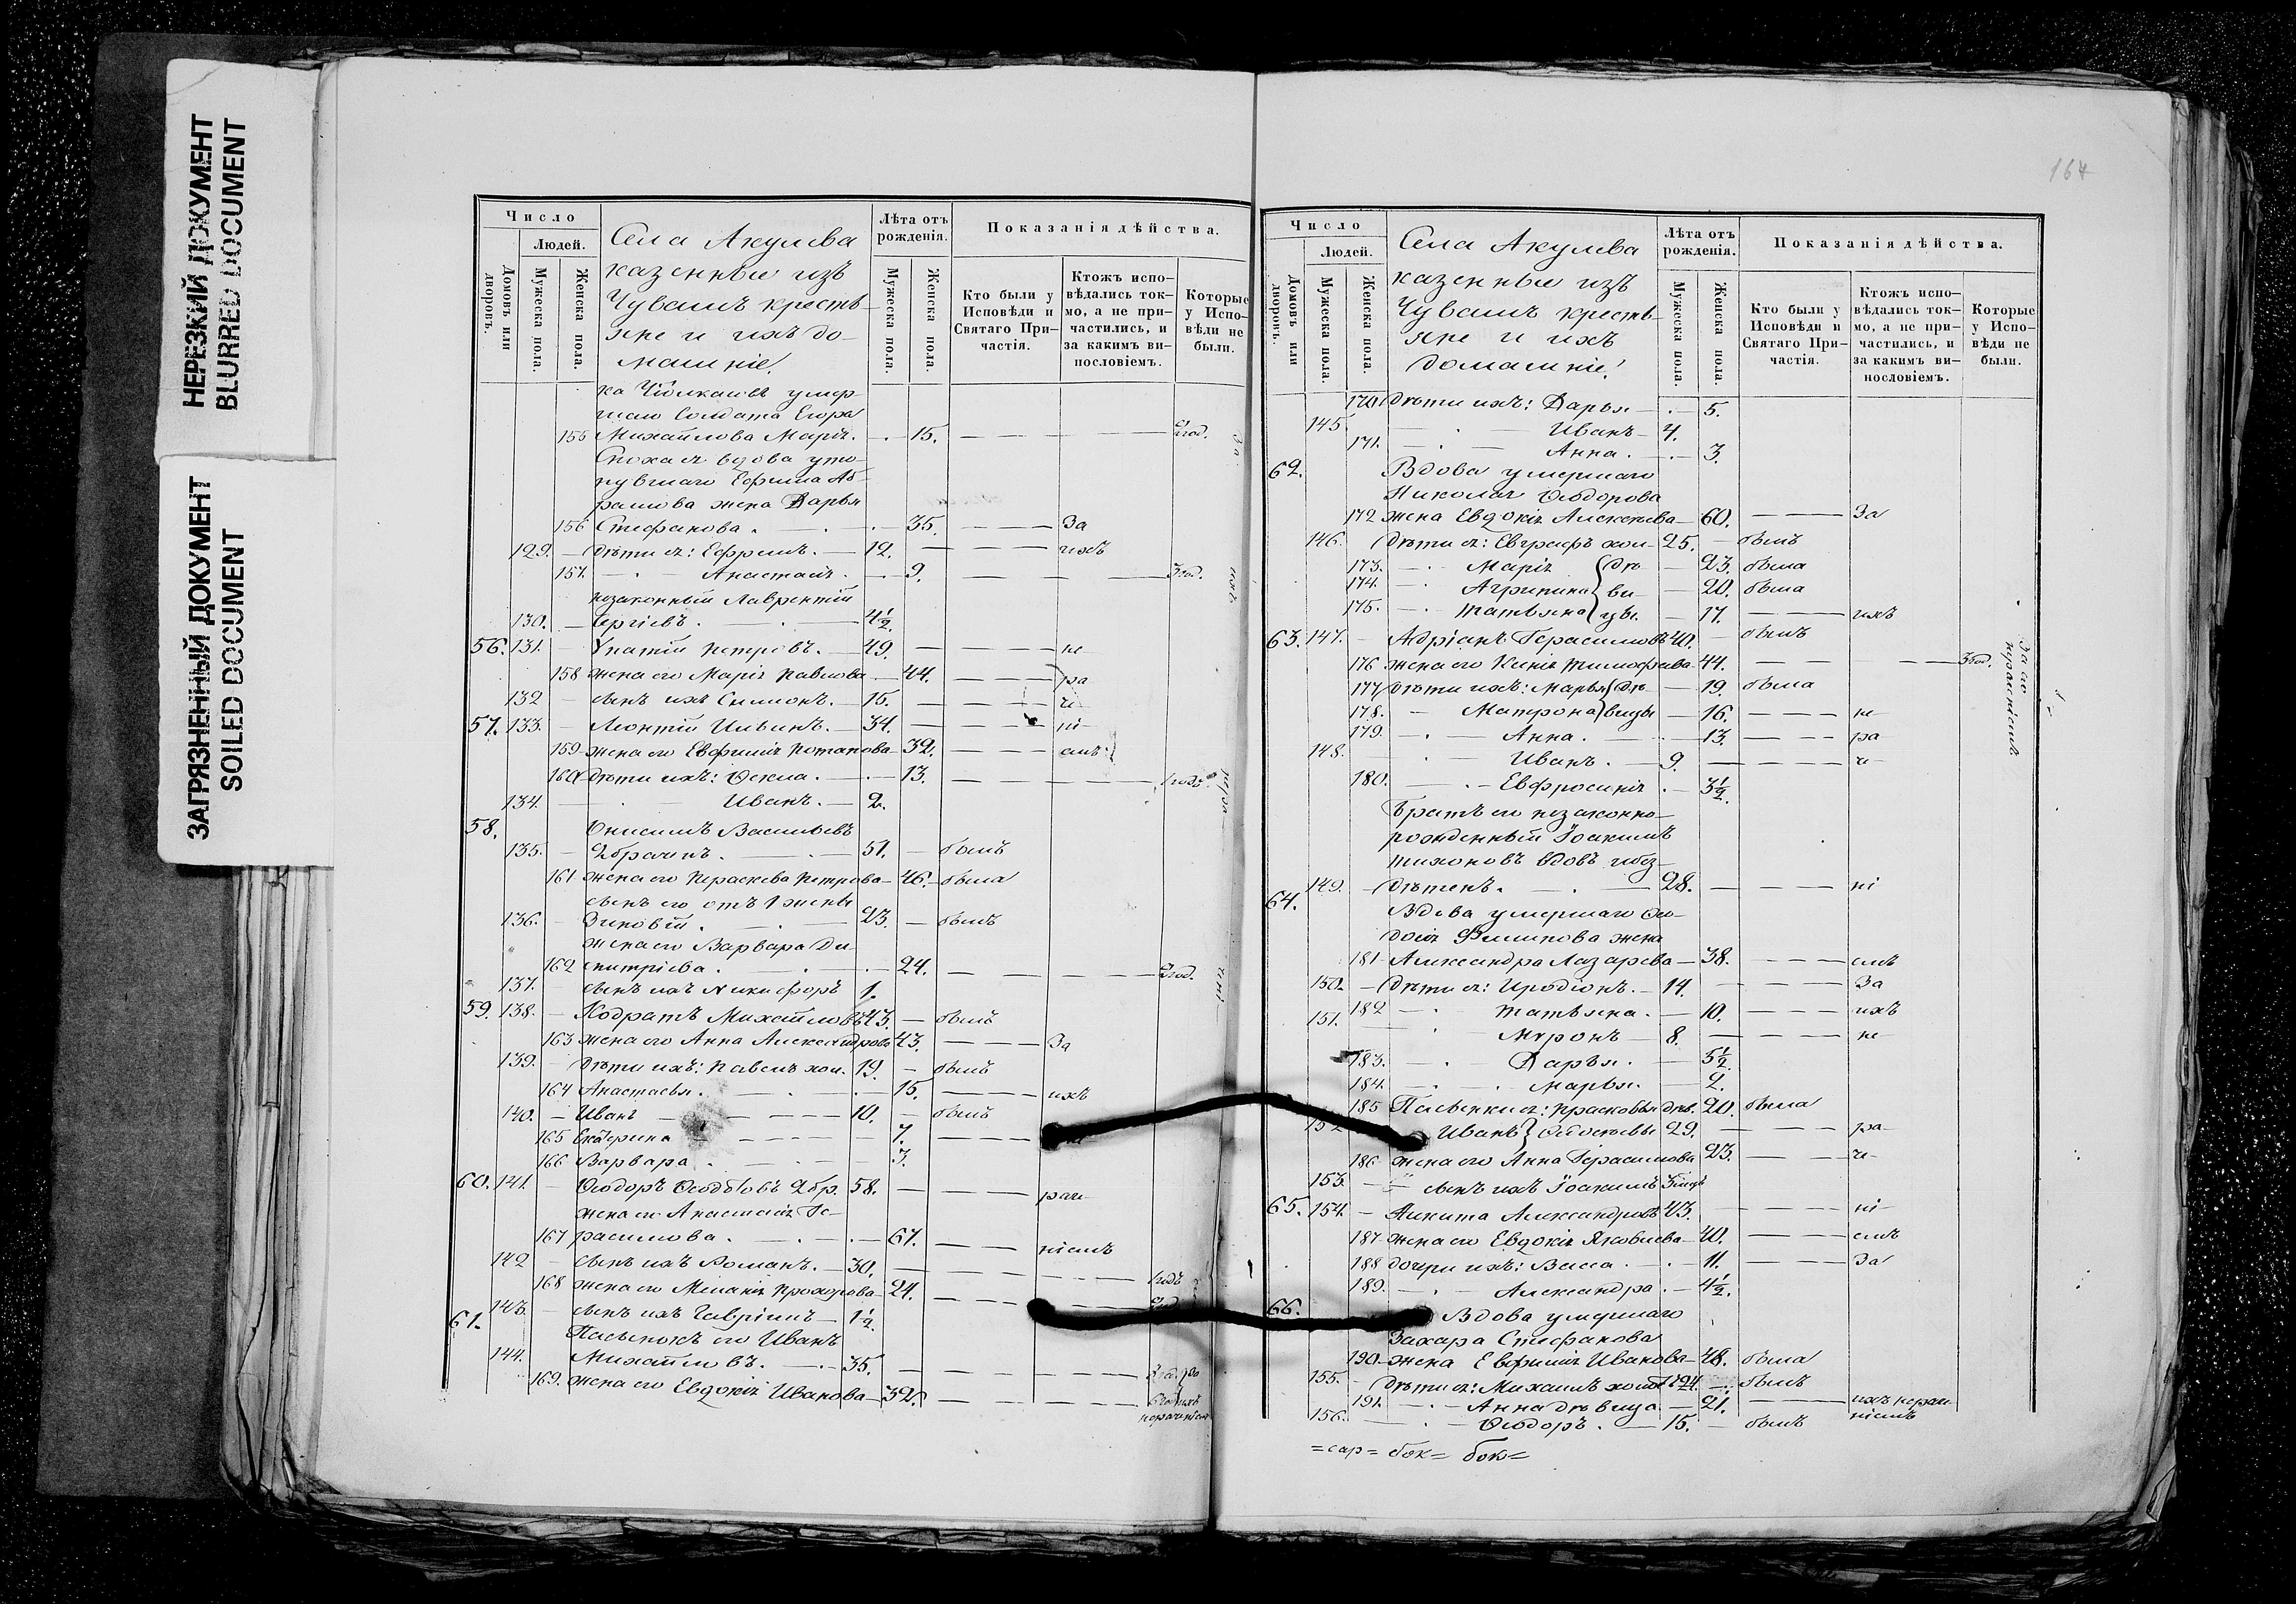 НЕРЕЗКИЙ ДОКУМЕНТ
BLURRED DOCUMENT
ЗАГРЯЗНЕННЫЙ ДОКУМЕНТ
SOILED DOCUMENT
Число
Людей.
Домовъ или дворовъ.
Мужеска пола.
Женска пола.
Села Акулева
казенные изъ
Чувашъ кресть-
яне и ихъ до-
машніе.
Лѣта отъ рожденія.
Мужеска пола.
Женска пола.
Показанія дѣйства.
Кто были у Исповѣди и Святаго При-частія.
Ктожъ испо-вѣдались ток-мо, а не при-частились, и за какимъ ви-нословіемъ.
Которые у Испо-вѣди не были.
умер-
шаго Солдата Егора
155 Михайлова Марія. 15. 2год.
Сноха ея вдова уто-
нувшаго Ефима Аб-
рамова жена Дарья
156 Стефанова. 35. За
129. дѣти ея: Ефремъ. 12. ихъ
157. Анастасія. 9. 3год.
незаконный Лаврентій
130. Сергіевъ. 4½.
56. 131. Упатій Петровъ. 49. не
158 жена его Марія Павлова 44. ра
132 сынъ ихъ Симионъ. 15. че
57. 133. Леонтій Ильинъ. 34. ні
159 жена его Евфимія Потапова 32. емъ
160 дѣти ихъ: Ѳекла. 13. 1годъ
134. Иванъ. 2.
58. Онисимъ Васильевъ
135. 2браченъ. 51. былъ
161 жена его Параскева Петрова 46. была
сынъ его отъ 1 жены
136. Зиновій. 23. былъ
жена его Варвара Ди-
162 митріева. 24. 2год.
137. сынъ ихъ Никифоръ 1.
59. 138. Кодратъ Михайловъ 43. былъ
163 жена его Анна Александрова 43. За
139. дѣти ихъ: Павелъ хол. 19. былъ
164 Анастасья. 15. ихъ
140. Иванъ 10. былъ
165 Екатерина 7.
166 Варвара 3.
60. 141. Ѳеодоръ 2бр. 58. рач
жена его Анастасія Ге-
167 расимова. 67. ніемъ
142 сынъ ихъ Романъ. 30. 1годъ
168 жена его Меланія Прохорова 24. 2год
143. сынъ ихъ Гавріилъ 1½.
61. Пасынокъ его Иванъ
144. Михайловъ. 35.
169. жена его Евдокія Иванова 32.
164
Число
Людей.
Домовъ или дворовъ.
Мужеска пола.
Женска пола.
Села Акулева
казенные изъ
Чувашъ кресть-
яне и ихъ
домашніе.
Лѣта отъ рожденія.
Мужеска пола.
Женска пола.
Показанія дѣйства.
Кто были у Исповѣди и Святаго При-частія.
Ктожъ испо-вѣдались ток-мо, а не при-частились, и за какимъ ви-нословіемъ.
Которые у Испо-вѣди не были.
170. дѣти ихъ: Дарья 5.
145. Иванъ 4.
171. Анна. 3.
62. Вдова умершаго
Николая Ѳеодорова
172 жена Евдокія Алексеева 60. За
146. дѣти ея: Евграфъ хол. 25. былъ
173. Марія 23. была
174. Агрипина 20. была
175. Татьяна 17. ихъ
дѣвицы
63. 147. Адріанъ Герасимовъ 40. былъ
176 жена его Ксенія Тимофеева 44. 3год.
177 дѣти ихъ: Марья 19. была
178. Матрона 16. не
дѣвицы
179. Анна. 13. ра
148. Иванъ. 9. че
180. Евфросинія 3½.
Братъ его незаконно-
рожденный Іоакимъ
Тихоновъ вдовъ и без-
149. дѣтенъ. 28. ні
64. Вдова умершаго Ѳео-
досія Филипова жена
181 Александра Лазарева 38. емъ
150. дѣти ея: Иродіонъ. 14. За
182 Татьяна. 10. ихъ
151. Миронъ 8. не
183. Дарья. 5½.
184. Марья. 2.
185 Пасынки ея: Прасковья дѣв. 20. была
Иванъ Ѳеодосьевы 29. ра
186 жена его Анна Герасимова 23. че
153. сынъ ихъ Іоакимъ
65. 154. Никита Александровъ 43. ні
187 жена его Евдокія Яковлева 40. емъ
188 дочери ихъ: Васса. 11. За
189. Александра. 4½.
66. Вдова умершаго
Захара Стефанова
190 жена Евфимія Иванова 48. была
155. дѣти ея: Михаилъ холос 24. былъ
191. Анна дѣвица. 21. ихъ нерач
ніемъ
156. Ѳеодоръ. 15. былъ
За его
нераченіемъ